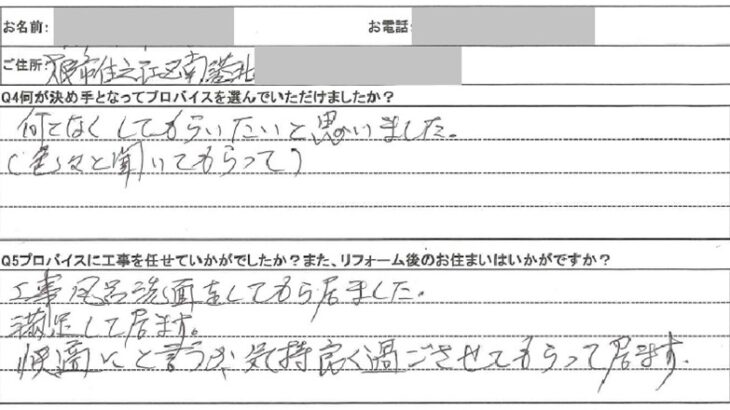 お名前: お電話:
ご住所: 大阪市住之江区南港北
Q4何が決め手となってプロバイスを選んでいただけましたか?
何となくしてもらいたいと思いました。
(色々と聞いてもらって)
Q5プロバイスに工事を任せていかがでしたか?また、リフォーム後のお住まいはいかがですか?
工事風呂洗面をしてもら居ました。
満足して居ます。
快適にと言うか気持良く過ごさせてもらって居ます.